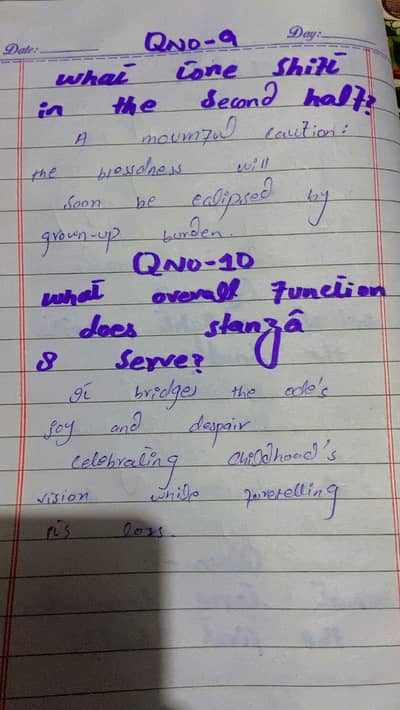 Date:
QNO-9
Day:
what tone shift
in the second half?
A mournful caution:
the blessdness will
soon be eclipsed by
grown-up burden.
QNO-10
what overall function
does stanza
8 serve?
it bridges the ode's
joy and despair
celebrating childhood's
vision while foretelling
its loss.